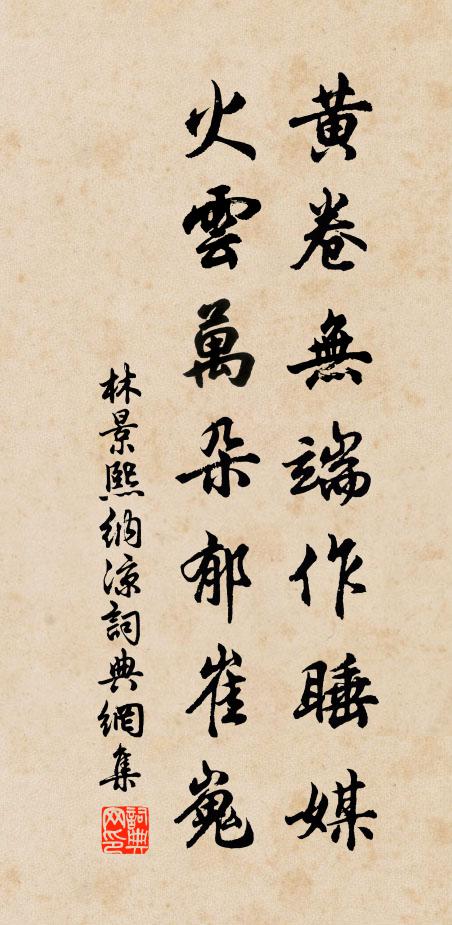 黄卷無端作睡媒
火雲萬朵郁崔嵬
林景熙納涼詞典網集
詞典网印